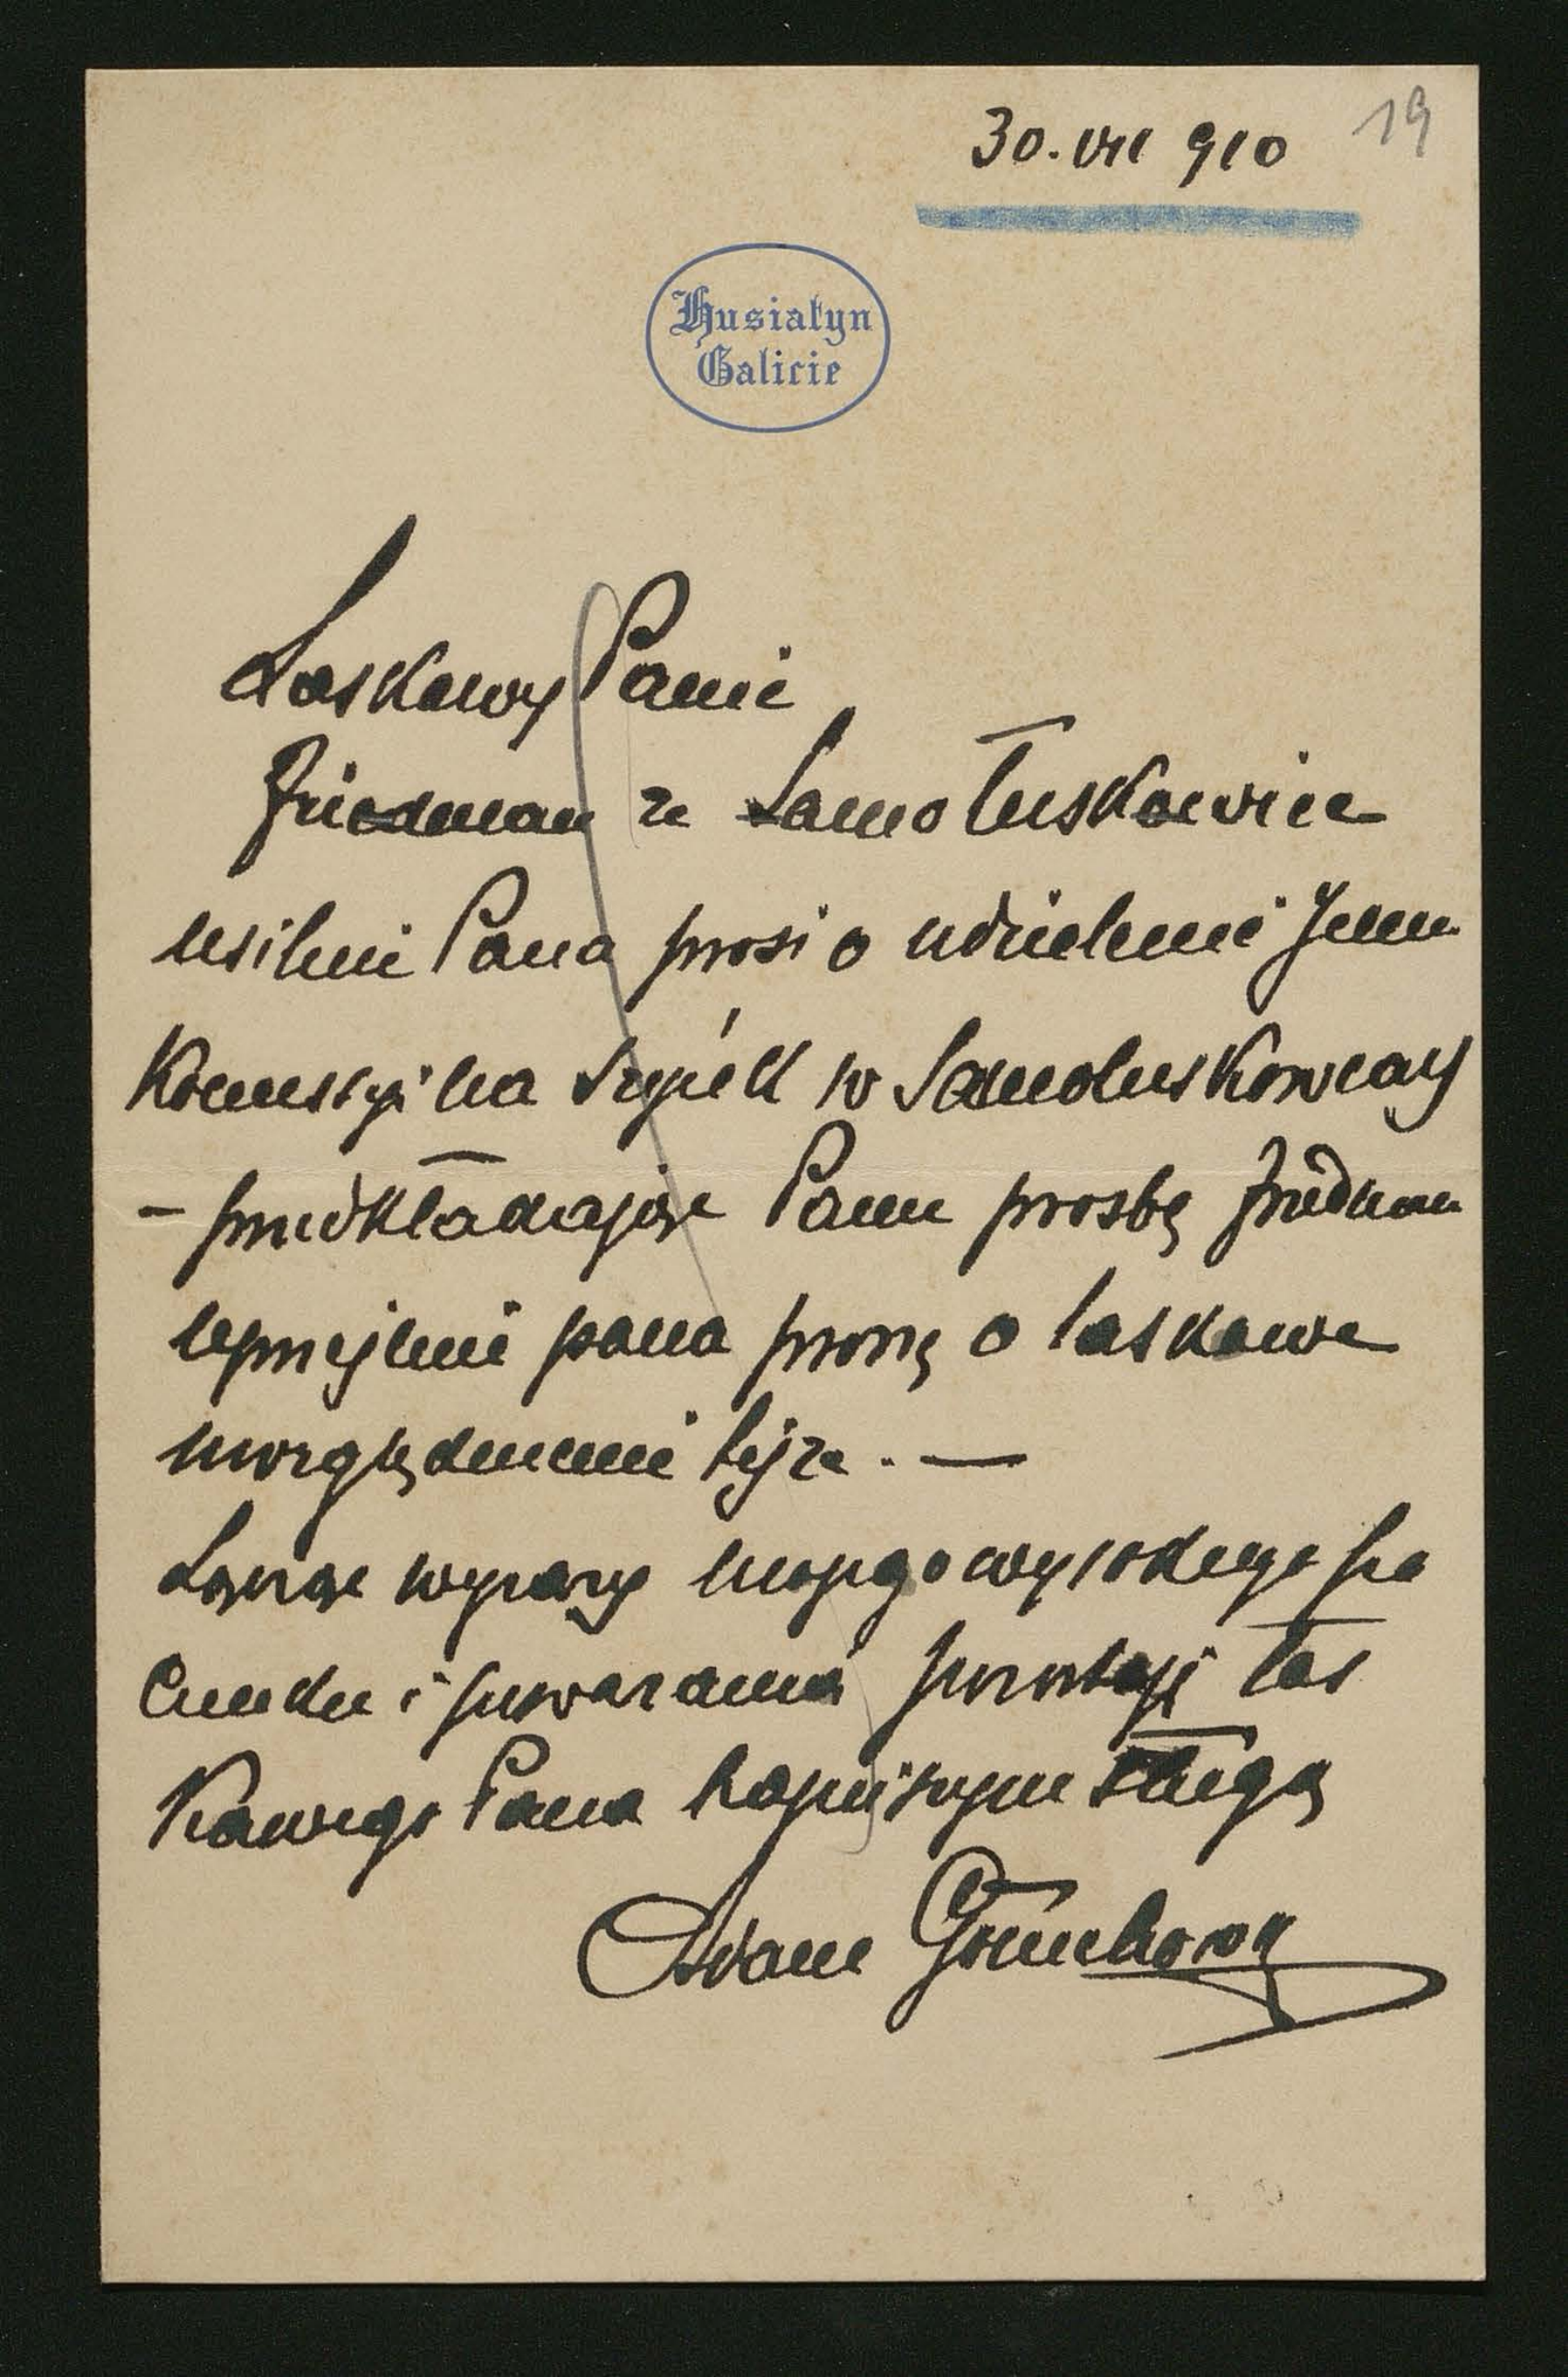 30. VII 910
19
Husiatyn
Galicie
Łaskawy Panie
Friedman ze Samołuskowiec
usilnie Pana prosi o udzielenie Jemu
Koncesyi na w Samoluskowcach
– przedkładając Panu prosbę Friedmana
uprzejmie pana proszę o łaskawe
uwzględnienie tejże. —
Łącząc wyrazy mojego wysokiego sza
cunku i poważania pozostaję łas
kawego Pana sługą
Adam